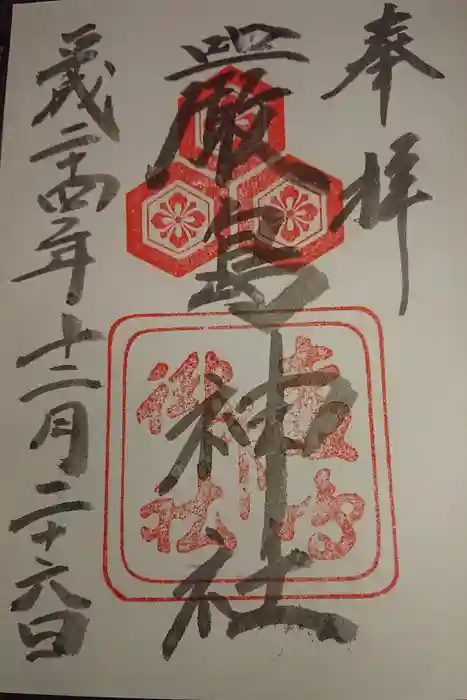 奉拝
嚴島神社
平成二十四年十二月二十六日
嚴島
神社